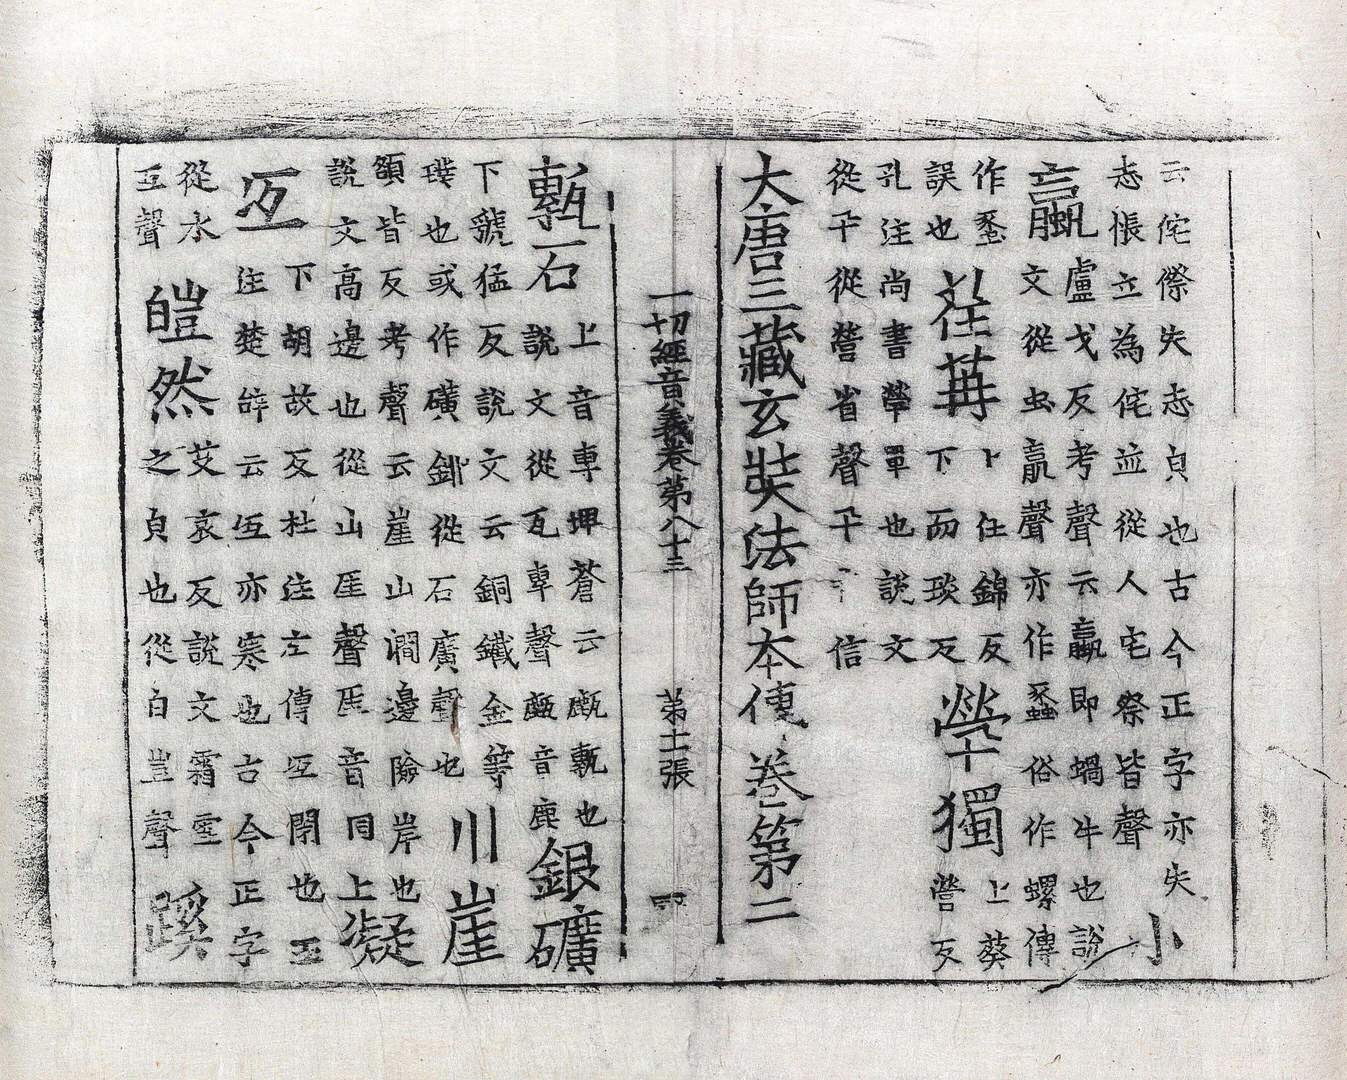 云侘傺失志皃也古今正字亦失
志悵立為侘並從人宅祭皆聲 小
蠃 盧戈反考聲云蠃即蝸牛也說
文從虫𣎆聲亦作蝨俗作螺傳
作 誤也 荏苒 任錦反
下而琰反 煢獨 上葵
營反
孔注尚書煢單也說文
從卂從營省聲卂 信
大唐三藏玄奘法師本傳卷第二
一切經音義卷第八十三 第十張
甎石 上音専埤蒼云甎也
說文從瓦專聲 音鹿 銀礦
下虢猛反說文云銅鐵金等
璞也或作礦鉚從石廣聲也 川崖
額皆反考聲云崖山澗邊險岸也
說文高邊也從山厓聲厓音同上 凝
冱 下胡故反杜注左傳冱閉也
注楚辝云冱亦寒也古今正字
從水
互聲 皚然 艾哀反說文霜雪
之皃也從白豈聲 蹊